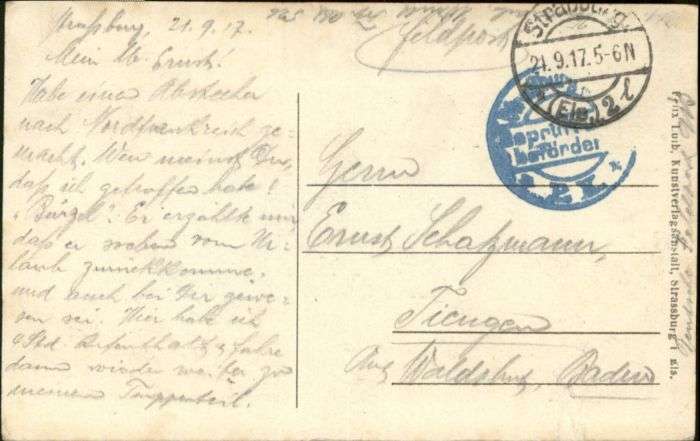 Straßburg, 21.9.17.
Mein lb. Ernst!
Habe einen Abstecher
nach Nordfrankreich ge=
macht. Wen meinst Du,
daß ich getroffen habe!
"Bürgel". Er erzählte mir,
daß er soeben vom Ur=
laub zurückkomme,
und auch bei Dir gewe=
sen sei. Hier habe ich
4 Std. Aufenthalt & fahre
dann wieder weiter zu
meinem Truppenteil.
Feldpost
Straßburg
21.9.17.5-6N
(Els.) 2 l
Geprüft
befördert
Herrn
Ernst Schatzmann,
Tiengen
Amt Waldshut, Baden
Felix Luib, Kunstverlagsanstalt, Strassburg i. Els.